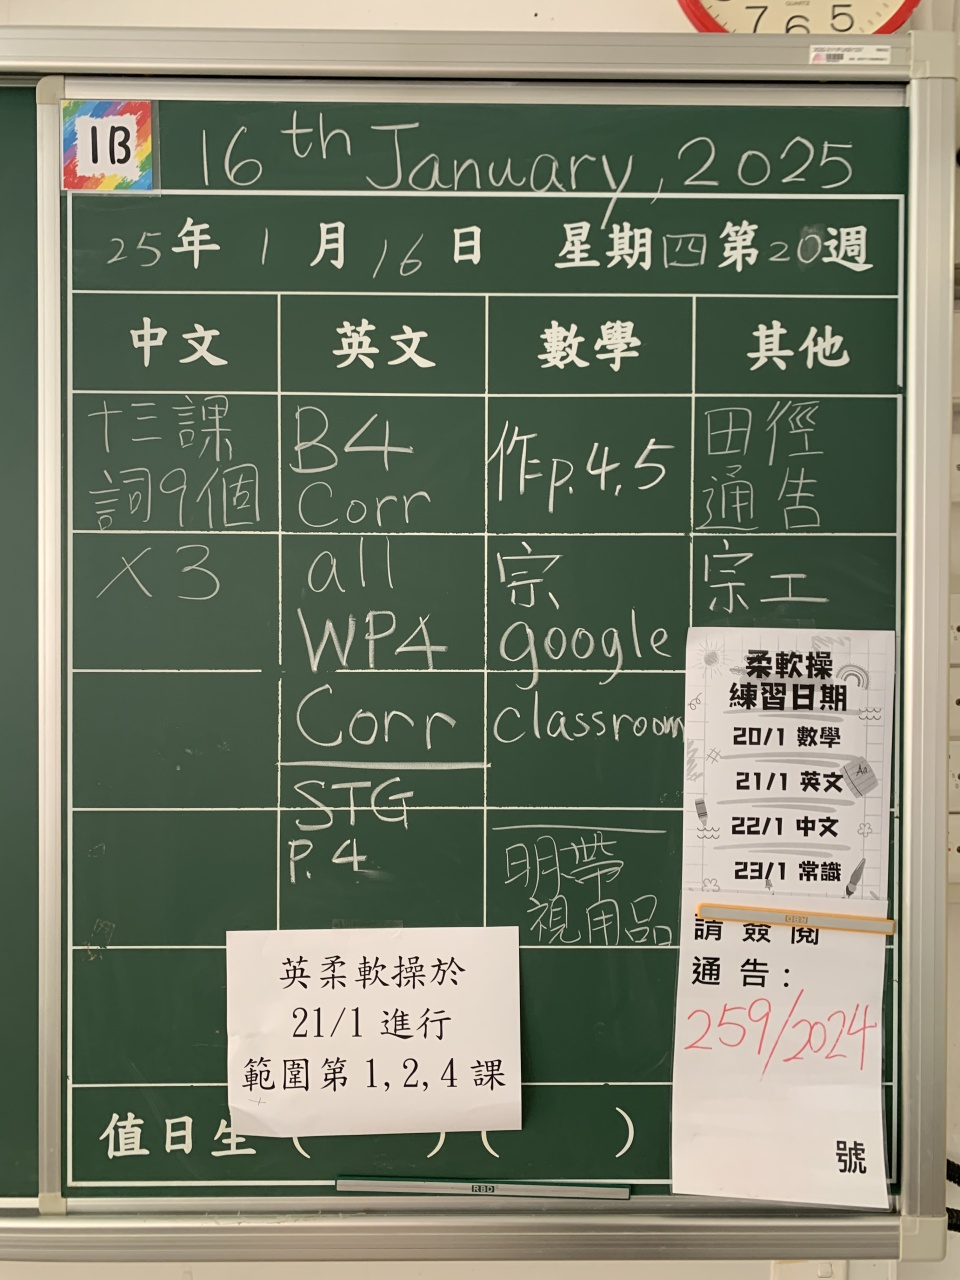 7 6 5
QUARTZ
1B
16th January, 2025
25年 1月 16日 星期四第20週
中文
英文
數學
其他
十三課
詞9個
x3
B4
Corr
all
WP4
Corr
STG
P.4
作p.4,5
宗
google
classroom
明帶
視用品
田徑
通告
宗工
柔軟操
練習日期
20/1 數學
21/1 英文
Aa
22/1 中文
23/1 常識
請簽閱
通告:
259/2024
號
英柔軟操於
21/1 進行
範圍第 1, 2, 4 課
值日生 ( ) ( )
RBD